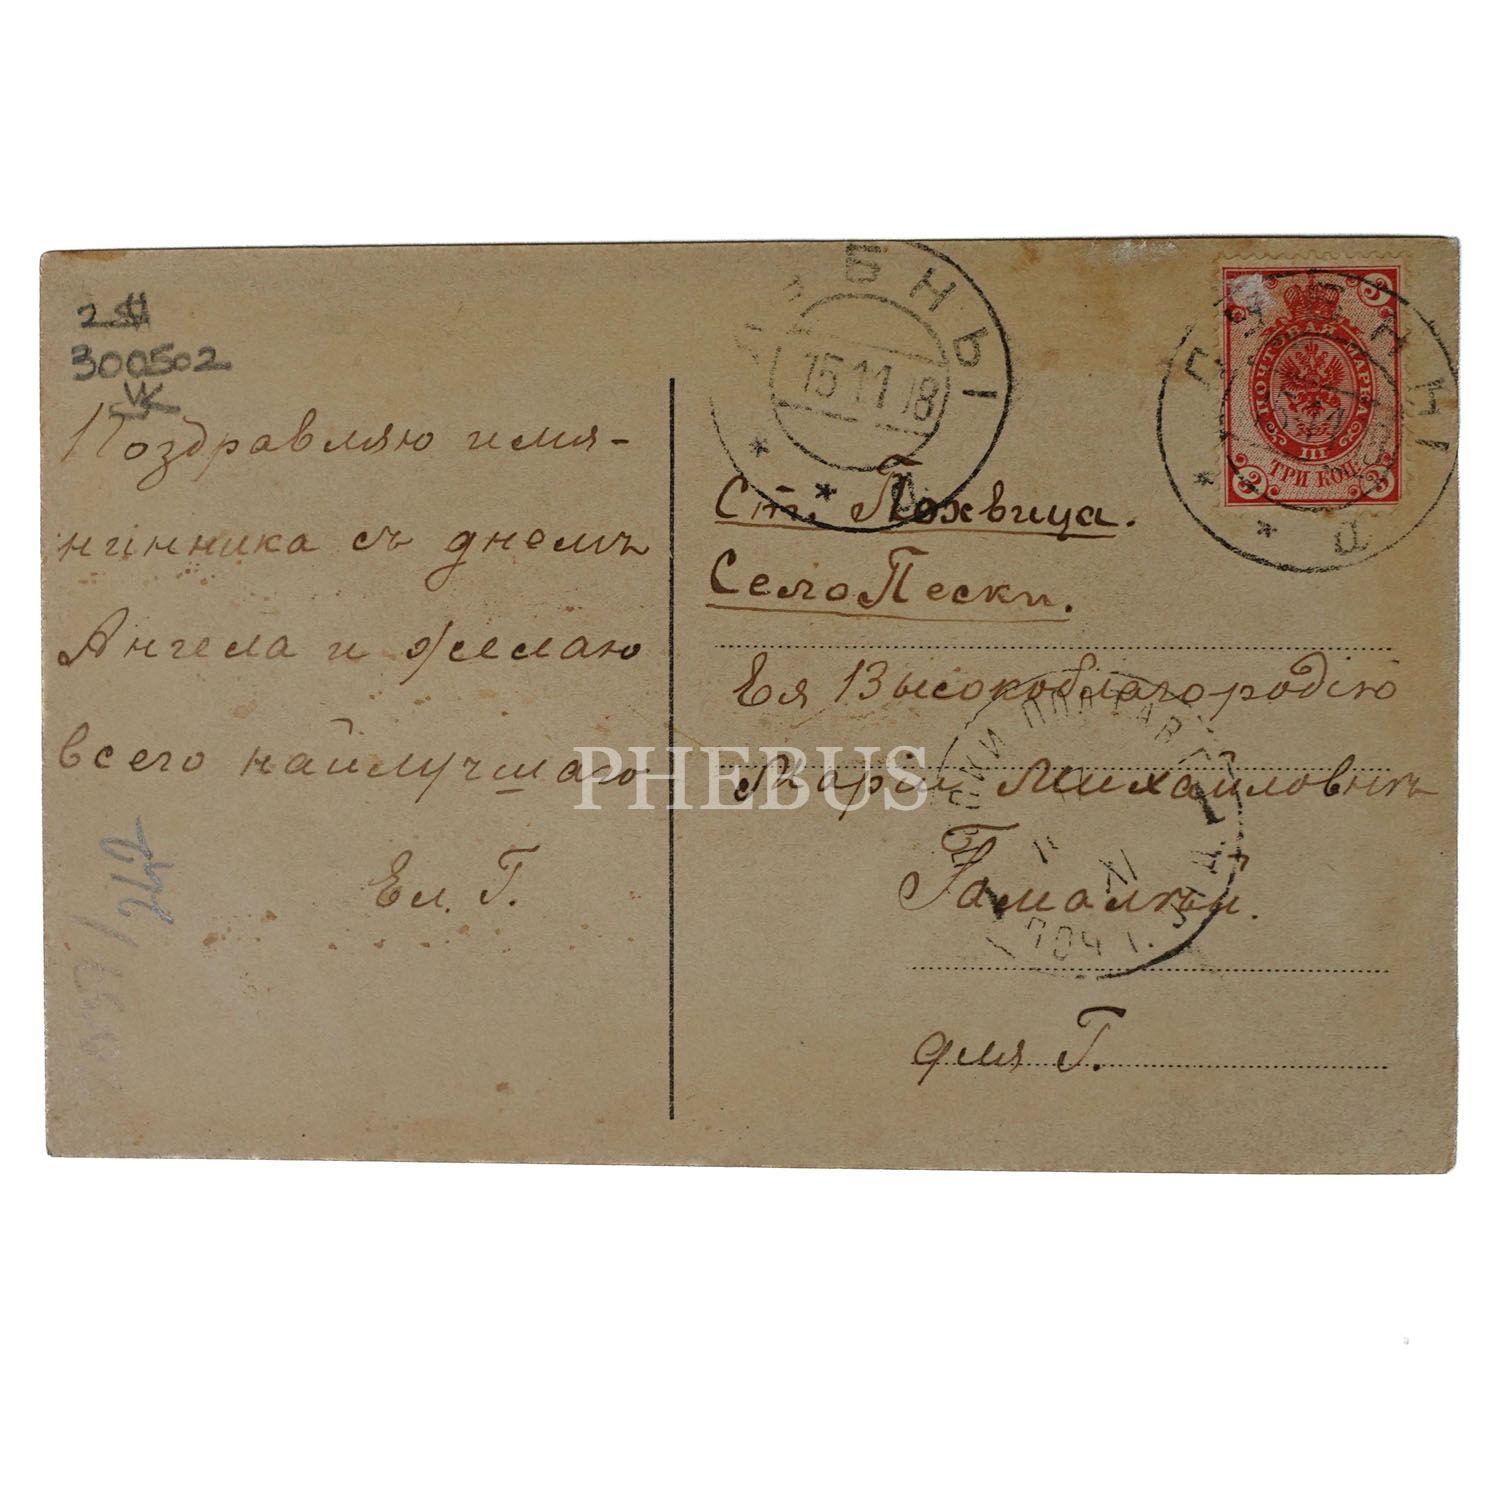 2
300502
Поздравляю имя-
нинника съ днемъ
Ангела и желаю
всего найлучшаго
Ел. Г.
ЛУБНЫ
15 11 08
а
Ст. Лохвица.
Село Пески.
Ея Высокоблагородію
Маріи Михайловнѣ
Гамалѣи.
для Г.
ПОЧТОВАЯ МАРКА
III
ТРИ КОП.
3 3
ЛУБНЫ
а
ПЕСКИ ПОЛТАВ.
XI
ПОЧТ.
PHEBUS